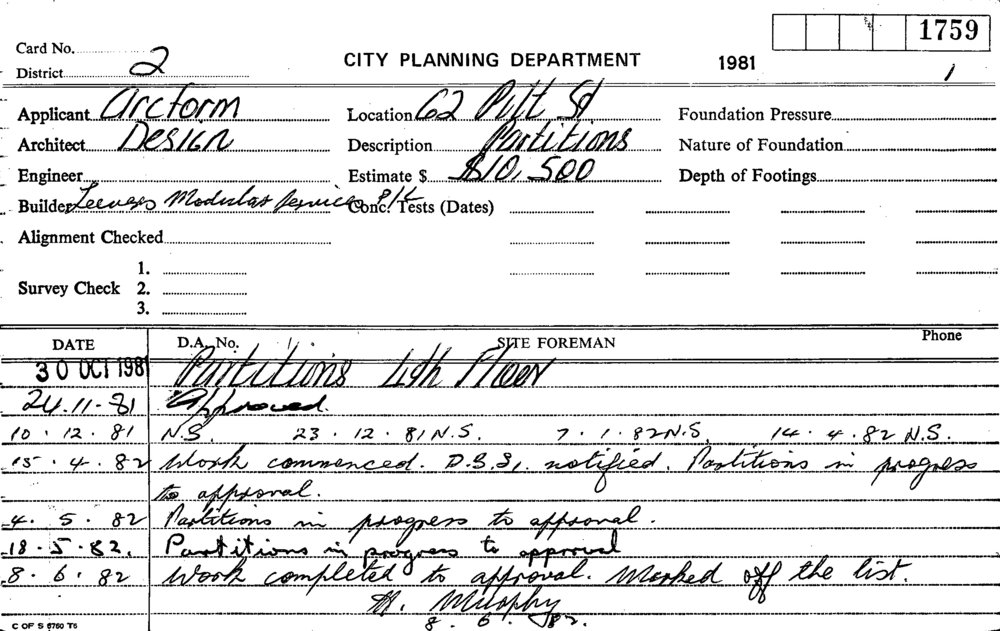 1759
Card No.
District 2 CITY PLANNING DEPARTMENT 1981 1
Applicant Arcform Location 62 Pitt St Foundation Pressure
Architect Design Description Partitions Nature of Foundation
Engineer Estimate $ $10,500 Depth of Footings
Builder Modular Services P/L Conc. Tests (Dates)
Alignment Checked
1.
Survey Check 2.
3.
DATE D.A. No. SITE FOREMAN Phone
30 OCT 1981 Partitions 4th Floor
24.11.81 Approved.
10.12.81 N.S. 23.12.81 N.S. 7.1.82 N.S. 14.4.82 N.S.
15.4.82 Work commenced. D.B.S. notified. Partitions in progress
to approval.
4.5.82 Partitions in progress to approval.
18.5.82. Partitions in progress to approval
8.6.82 Work completed to approval. Marked off the list.
Murphy
8.6.82.
C OF S 6760 T5